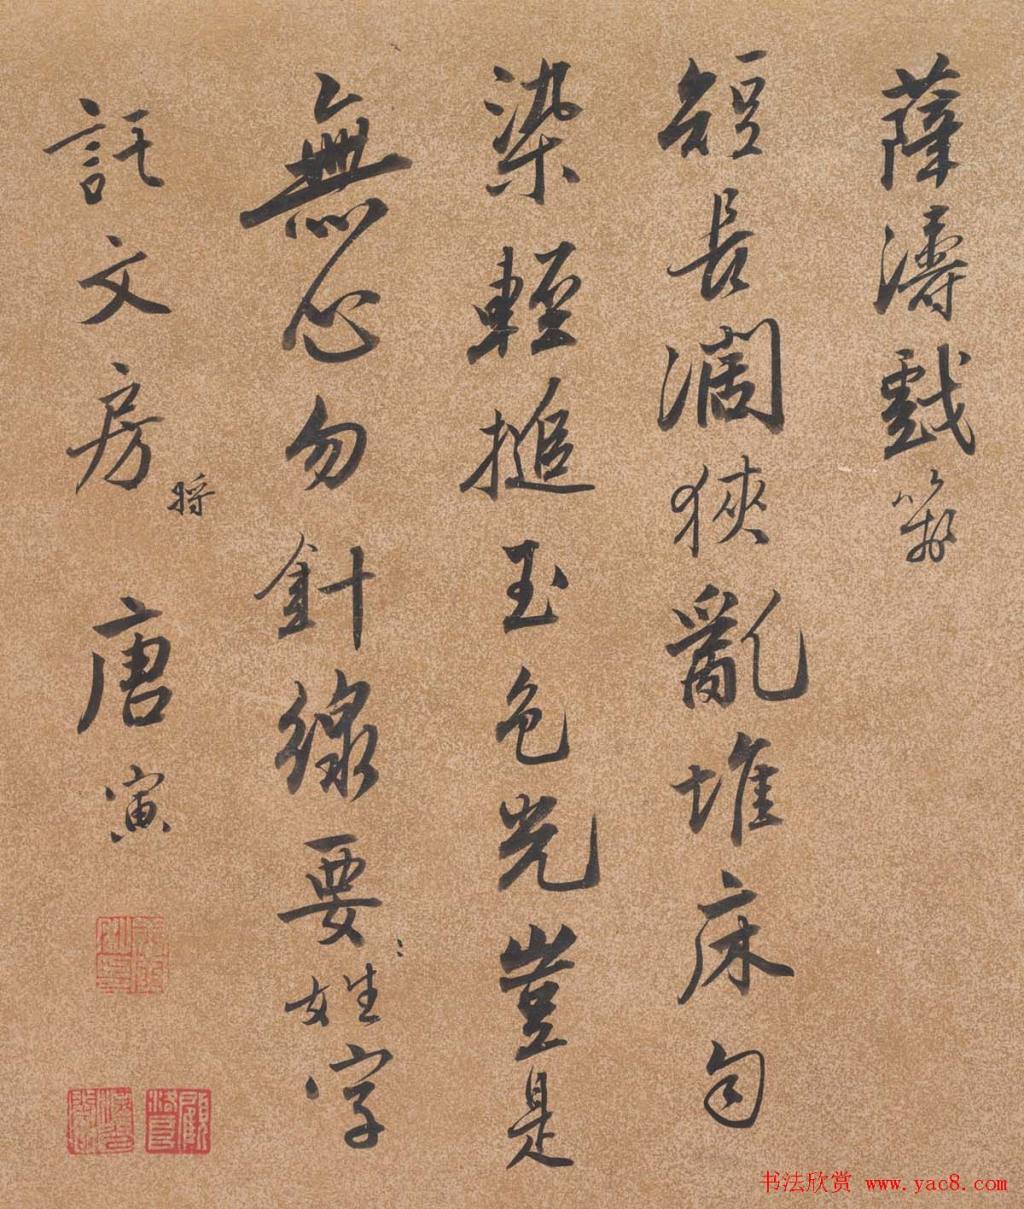 薛濤戲箋
短長濶狹亂堆床匀
染輕搥玉色光豈是
無心勿針線要姓字
託文房 将
唐寅
顧
书法欣赏 www.yac8.com